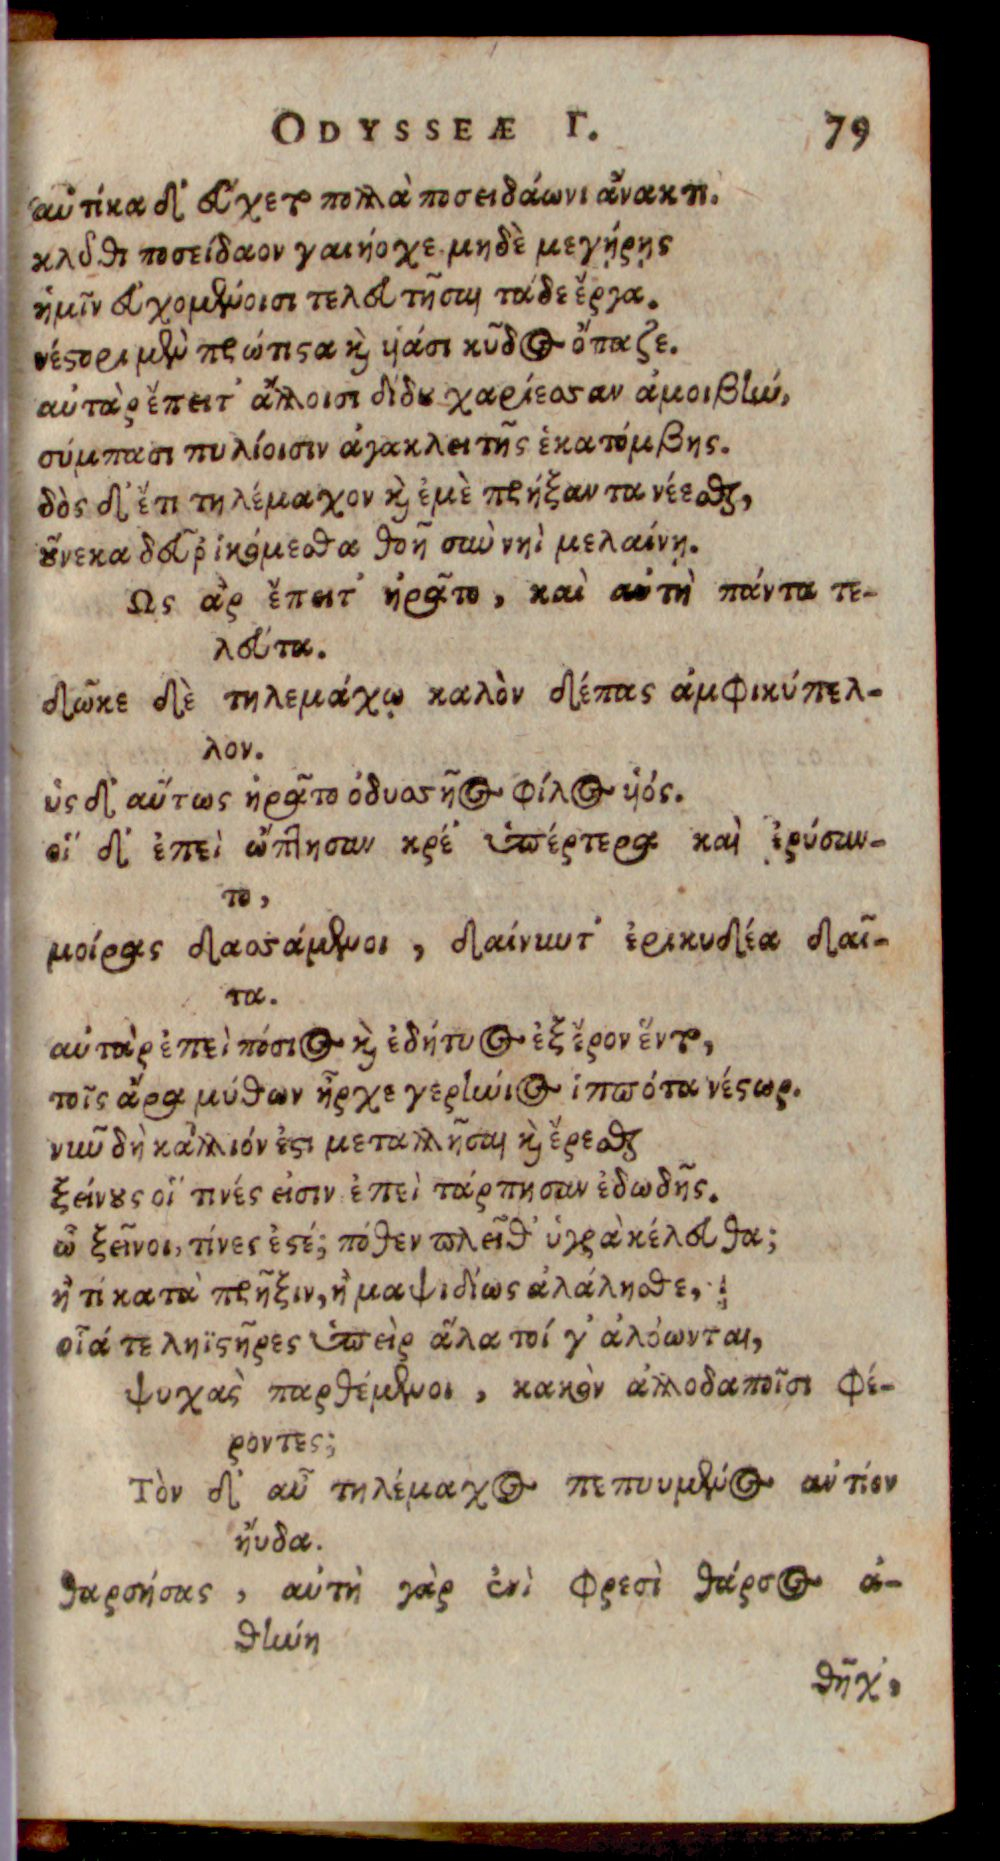 ODYSSEÆ Γ. 79
αὐτίκα δ' εὔχετο πολλὰ ποσειδάωνι ἄνακτι.
κλῦθι ποσείδαον γαιήοχε μηδὲ μεγήρῃς
ἡμῖν εὐχομένοισι τελευτῆσαι τάδε ἔργα.
νέστορι μὲν πρώτιστα καὶ υἱάσι κῦδος ὄπαζε.
αὐτὰρ ἔπειτ' ἄλλοισι δίδου χαρίεσσαν ἀμοιβὴν,
σύμπασι πυλίοισιν ἀγακλειτῆς ἑκατόμβης.
δὸς δ' ἔτι τηλέμαχον καὶ ἐμὲ πρήξαντα νέεσθαι,
οὕνεκα δεῦρ' ἱκόμεσθα θοῇ σὺν νηὶ μελαίνῃ.
Ως ἂρ ἔπειτ' ἠρᾶτο, καὶ αὐτὴ πάντα τε-
λεύτα.
δῶκε δὲ τηλεμάχῳ καλὸν δέπας ἀμφικύπελ-
λον.
ὣς δ' αὔτως ἠρᾶτο ὀδυσσῆος φίλος υἱός.
οἵ δ' ἐπεὶ ὤπτησαν κρέ' ὑπέρτερα καὶ ἐρύσαν-
το,
μοίρας δασσάμενοι, δαίνυντ' ἐρικυδέα δαῖ-
τα.
αὐτὰρ ἐπεὶ πόσιος καὶ ἐδήτυος ἐξ ἔρον ἕντο,
τοῖς ἄρα μύθων ἦρχε γερήνιος ἱππότα νέστωρ.
νῦν δὴ κάλλιόν ἐστι μεταλλῆσαι καὶ ἔρεσθαι
ξείνους οἵ τινές εἰσιν ἐπεὶ τάρπησαν ἐδωδῆς.
ὦ ξεῖνοι, τίνες ἐστέ; πόθεν πλεῖθ' ὑγρὰ κέλευθα;
ἤ τι κατὰ πρῆξιν, ἢ μαψιδίως ἀλάλησθε,
οἷά τε ληϊστῆρες ὑπεὶρ ἅλα τοί γ' ἀλόωνται,
ψυχὰς παρθέμενοι, κακὸν ἀλλοδαποῖσι φέ-
ροντες;
Τὸν δ' αὖ τηλέμαχος πεπνυμένος αὐτίον
ἤυδα.
θαρσήσας, αὐτὴ γὰρ ἐνὶ φρεσὶ θάρσος ἀ-
θήνη
θῆχ',